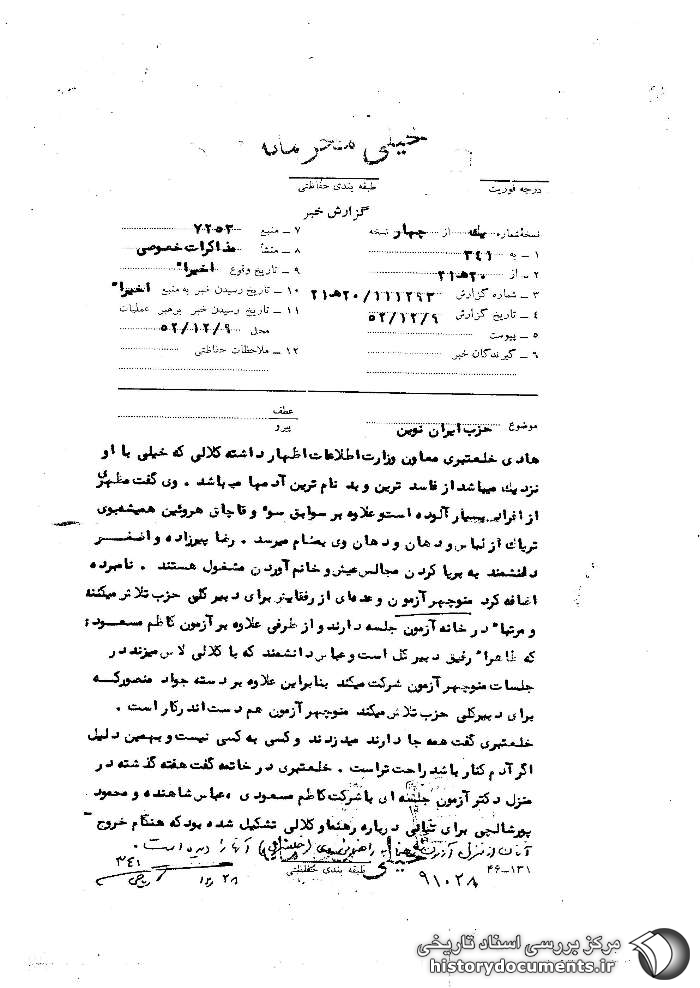 خیلی محرمانه
طبقه بندی حفاظتی
درجه فوریت
گزارش خبر
نسخه شماره یک از چهار نسخه
۱ ـ به ۳۴۱
۲ ـ از ۲۰ هـ ۲۱
۳ ـ شماره گزارش ۱۱۱۲۹۳/۲۰ هـ ۲۱
۴ ـ تاریخ گزارش ۵۲/۱۲/۹
۵ ـ پیوست
۶ ـ گیرندگان خبر
۷ ـ منبع ۷۲۵۳
۸ ـ منشأ مذاکرات خصوصی
۹ ـ تاریخ وقوع اخیرا"
۱۰ ـ تاریخ رسیدن خبر به منبع اخیرا"
۱۱ ـ تاریخ رسیدن خبر برهبر عملیات
محل ۵۲/۱۲/۹
۱۲ ـ ملاحظات حفاظتی
موضوع حزب ایران نوین
عطف
پیرو
هادی خلعتبری معاون وزارت اطلاعات اظهار داشته کلالی که خیلی با او
نزدیک میباشد از فاسد ترین و بد نام ترین آدمها میباشد . وی گفت مظهری
از افراد بسیار آلوده است و علاوه بر سوابق سوء و قاچاق هروئین همیشه بوی
تریاک از لباس و دهان و دهان وی بمشام میرسد . رضا پیرزاده و اصغر
دانشمند به برپا کردن مجالس عیش و خانم آوردن مشغول هستند . نامبرده
اضافه کرد منوچهر آزمون و عده‌ای از رفقایش برای دبیر کلی حزب تلاش میکنند
و مرتبا" در خانه آزمون جلسه دارند و از طرفی علاوه بر آزمون کاظم مسعودی
که ظاهرا" رفیق دبیر کل است و عباس دانشمند که با کلالی لاس میزند در
جلسات منوچهر آزمون شرکت میکند بنابراین علاوه بر دسته جواد منصور که
برای دبیرکلی حزب تلاش میکند منوچهر آزمون هم دست اندرکار است .
خلعتبری گفت همه جا دارند میدزدند و کسی به کسی نیست و بهمین دلیل
اگر آدم کنار باشد راحت تر است . خلعتبری در خاتمه گفت هفته گذشته در
منزل دکتر آزمون جلسه ای با شرکت کاظم مسعودی ، عباس شاهنده و محمود
پورشالچی برای تبانی درباره رهنما و کلالی تشکیل شده بود که هنگام خروج
آنان از منزل آزمون آنها را دیده است .
طبقه بندی حفاظتی
خیلی
۴۶-۱۳۱
۳۴۱
۹۱۰۲۸
مرکز بررسی اسناد تاریخی
historydocuments.ir